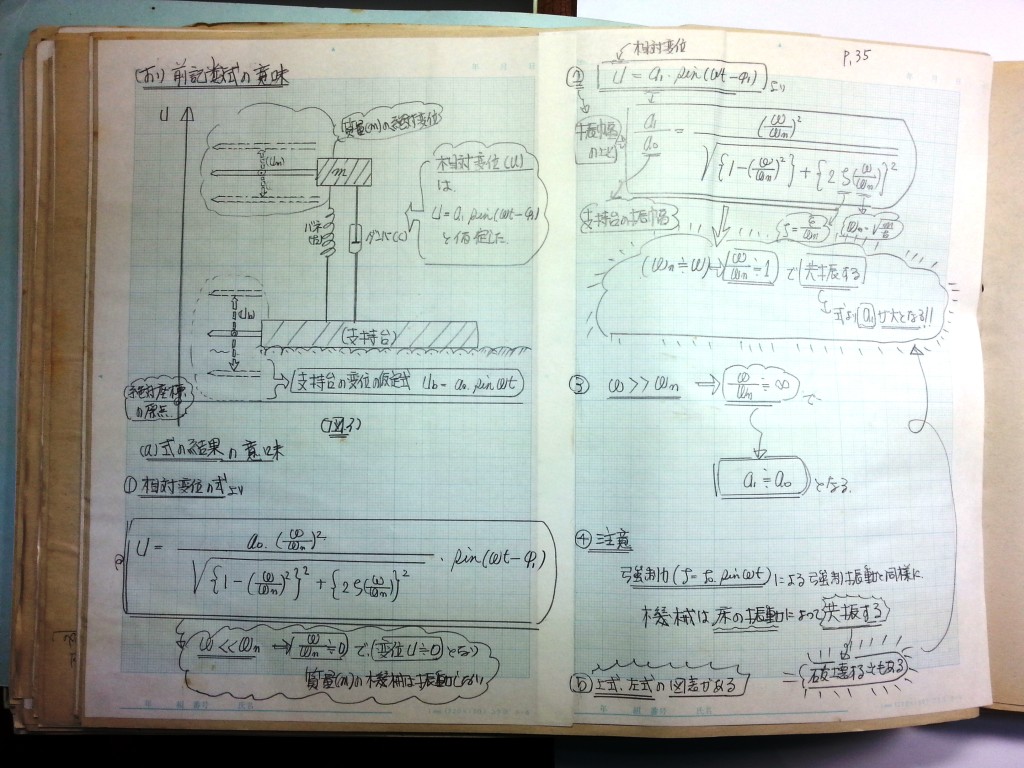 前記数式の意味
U
質量(m)の絶対変位
(Um)
m
相対変位(U)
は、
U = a₁ sin(ωt-φ₁)
と仮定した.
バネ
ダンパ(C)
(Ub)
(支持台)
支持台の変位の仮定式 Ub = a₀ sin ωt
絶対座標
の原点
(図3)
(a)式の結果の意味
① 相対変位の式より
U = a₀・(ω/ωn)² / √{1-(ω/ωn)²}²+{2ζ(ω/ωn)}² ・ sin(ωt-φ₁)
ω<<ωn → ω/ωn≒0 で (変位U≒0) となり
質量(m)の機械は振動しない
年 組 番号 氏名
P.35
年 月 日
相対変位
② U = a₁・sin(ωt-φ₁) より
振幅
のこと
a₁/a₀ = (ω/ωn)² / √{1-(ω/ωn)²}²+{2ζ(ω/ωn)}²
支持台の振幅
(ωn≒ω)→(ω/ωn≒1) で 共振する
式より a₁ が大となる!!
③ ω>>ωn ⇒ ω/ωn≒∞ で
a₁≒a₀ となる.
④ 注意
強制力(f=f₀ sin ωt)による強制振動と同様に.
機械は床の振動によって共振する
= 破壊する事もある
⑤ 上式、左式の図表がある
年 組 番号 氏名